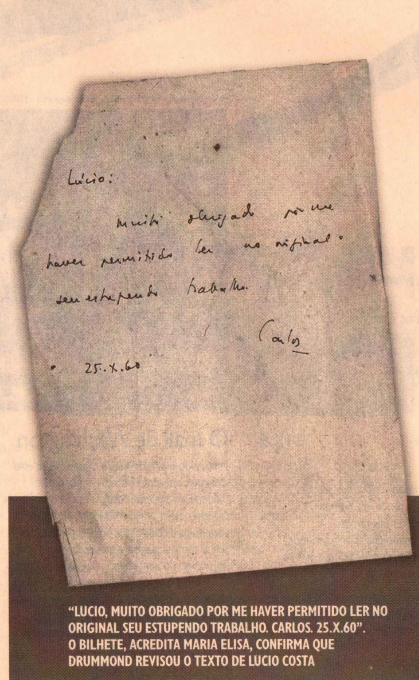 Lúcio:
muito obrigado por me
haver permitido ler no original
seu estupendo trabalho.
Carlos
25.X.60
"LUCIO, MUITO OBRIGADO POR ME HAVER PERMITIDO LER NO
ORIGINAL SEU ESTUPENDO TRABALHO. CARLOS. 25.X.60".
O BILHETE, ACREDITA MARIA ELISA, CONFIRMA QUE
DRUMMOND REVISOU O TEXTO DE LUCIO COSTA